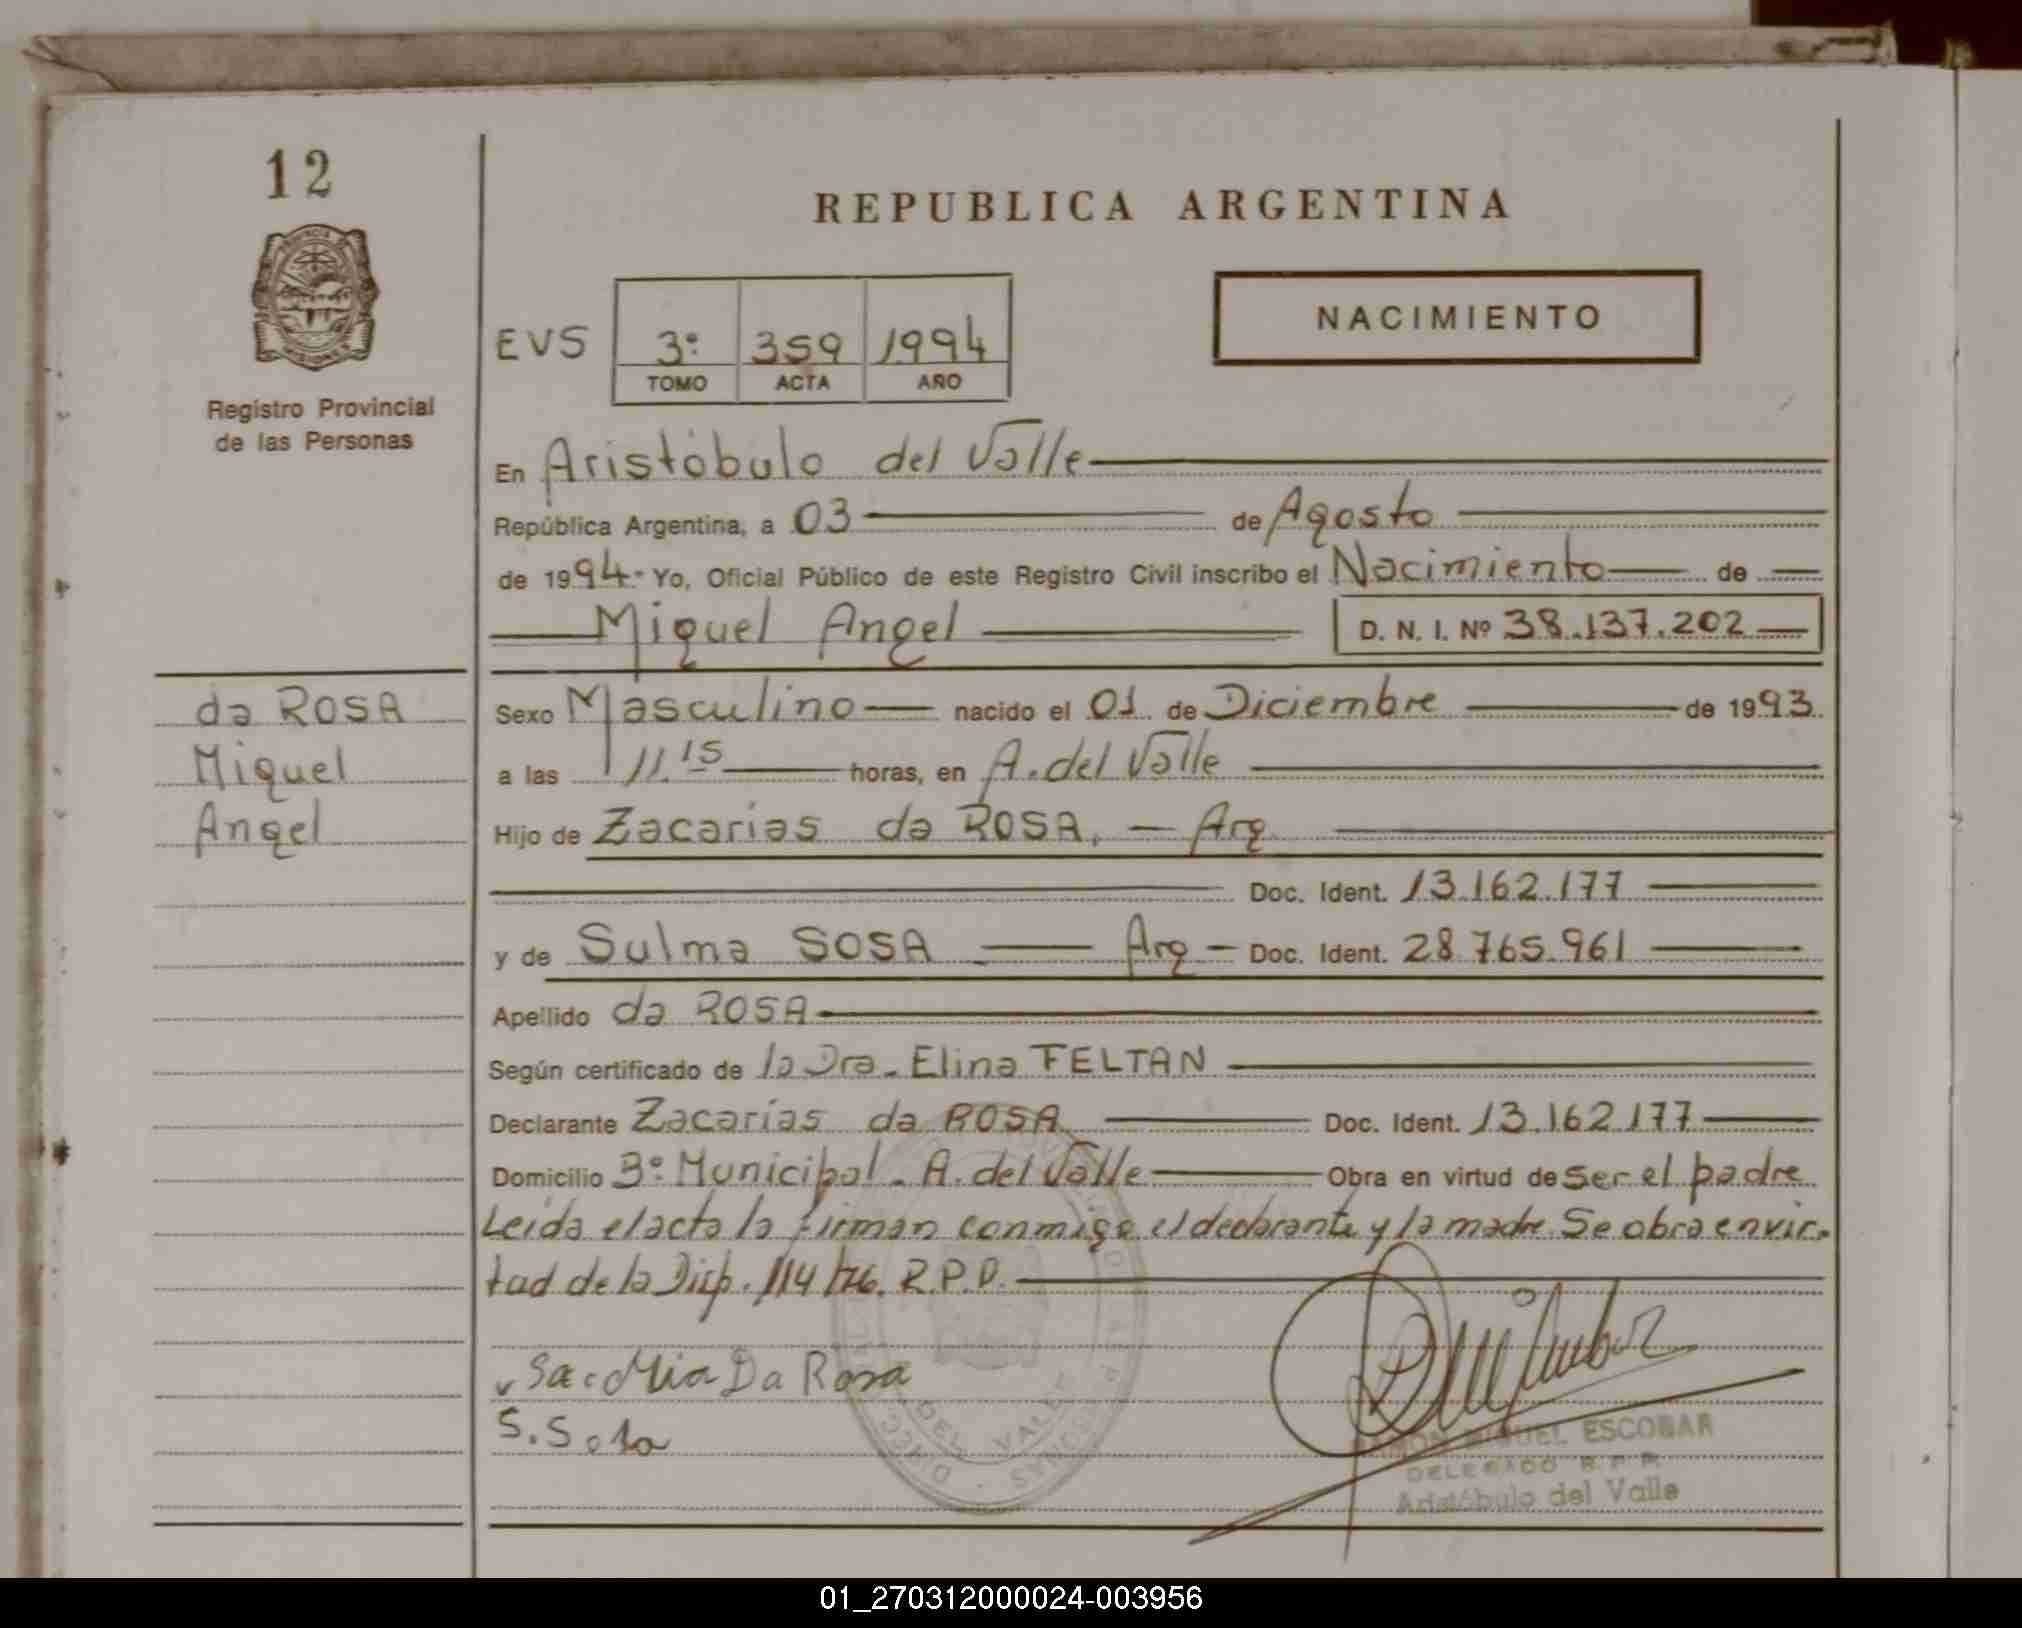 12
REPUBLICA ARGENTINA
NACIMIENTO
EVS 3º 359 1994
TOMO ACTA AÑO
Registro Provincial
de las Personas
En Aristóbulo del Valle
República Argentina, a 03 de Agosto
de 1994.- Yo, Oficial Público de este Registro Civil inscribo el Nacimiento de
Miguel Angel D. N. I. Nº 38.137.202
da ROSA
Miguel
Angel
Sexo Masculino nacido el 01 de Diciembre de 1993
a las 11.15 horas, en A. del Valle
Hijo de Zacarias da ROSA. - Arg
Doc. Ident. 13.162.177
y de Sulma SOSA Arg - Doc. Ident. 28.765.961
Apellido da ROSA
Según certificado de la Dra. Elina FELTAN
Declarante Zacarias da ROSA Doc. Ident. 13.162.177
Domicilio Bº Municipal. A. del Valle Obra en virtud de ser el padre
Leída el acta la firman conmigo el declarante y la madre. Se obra en vir-
tud de la Disp. 114/76. R.P.P.
Da Rosa
S. Sosa
MIGUEL ESCOBAR
DELEGADO R. P. P.
Aristóbulo del Valle
DEL VALLE
01_270312000024-003956